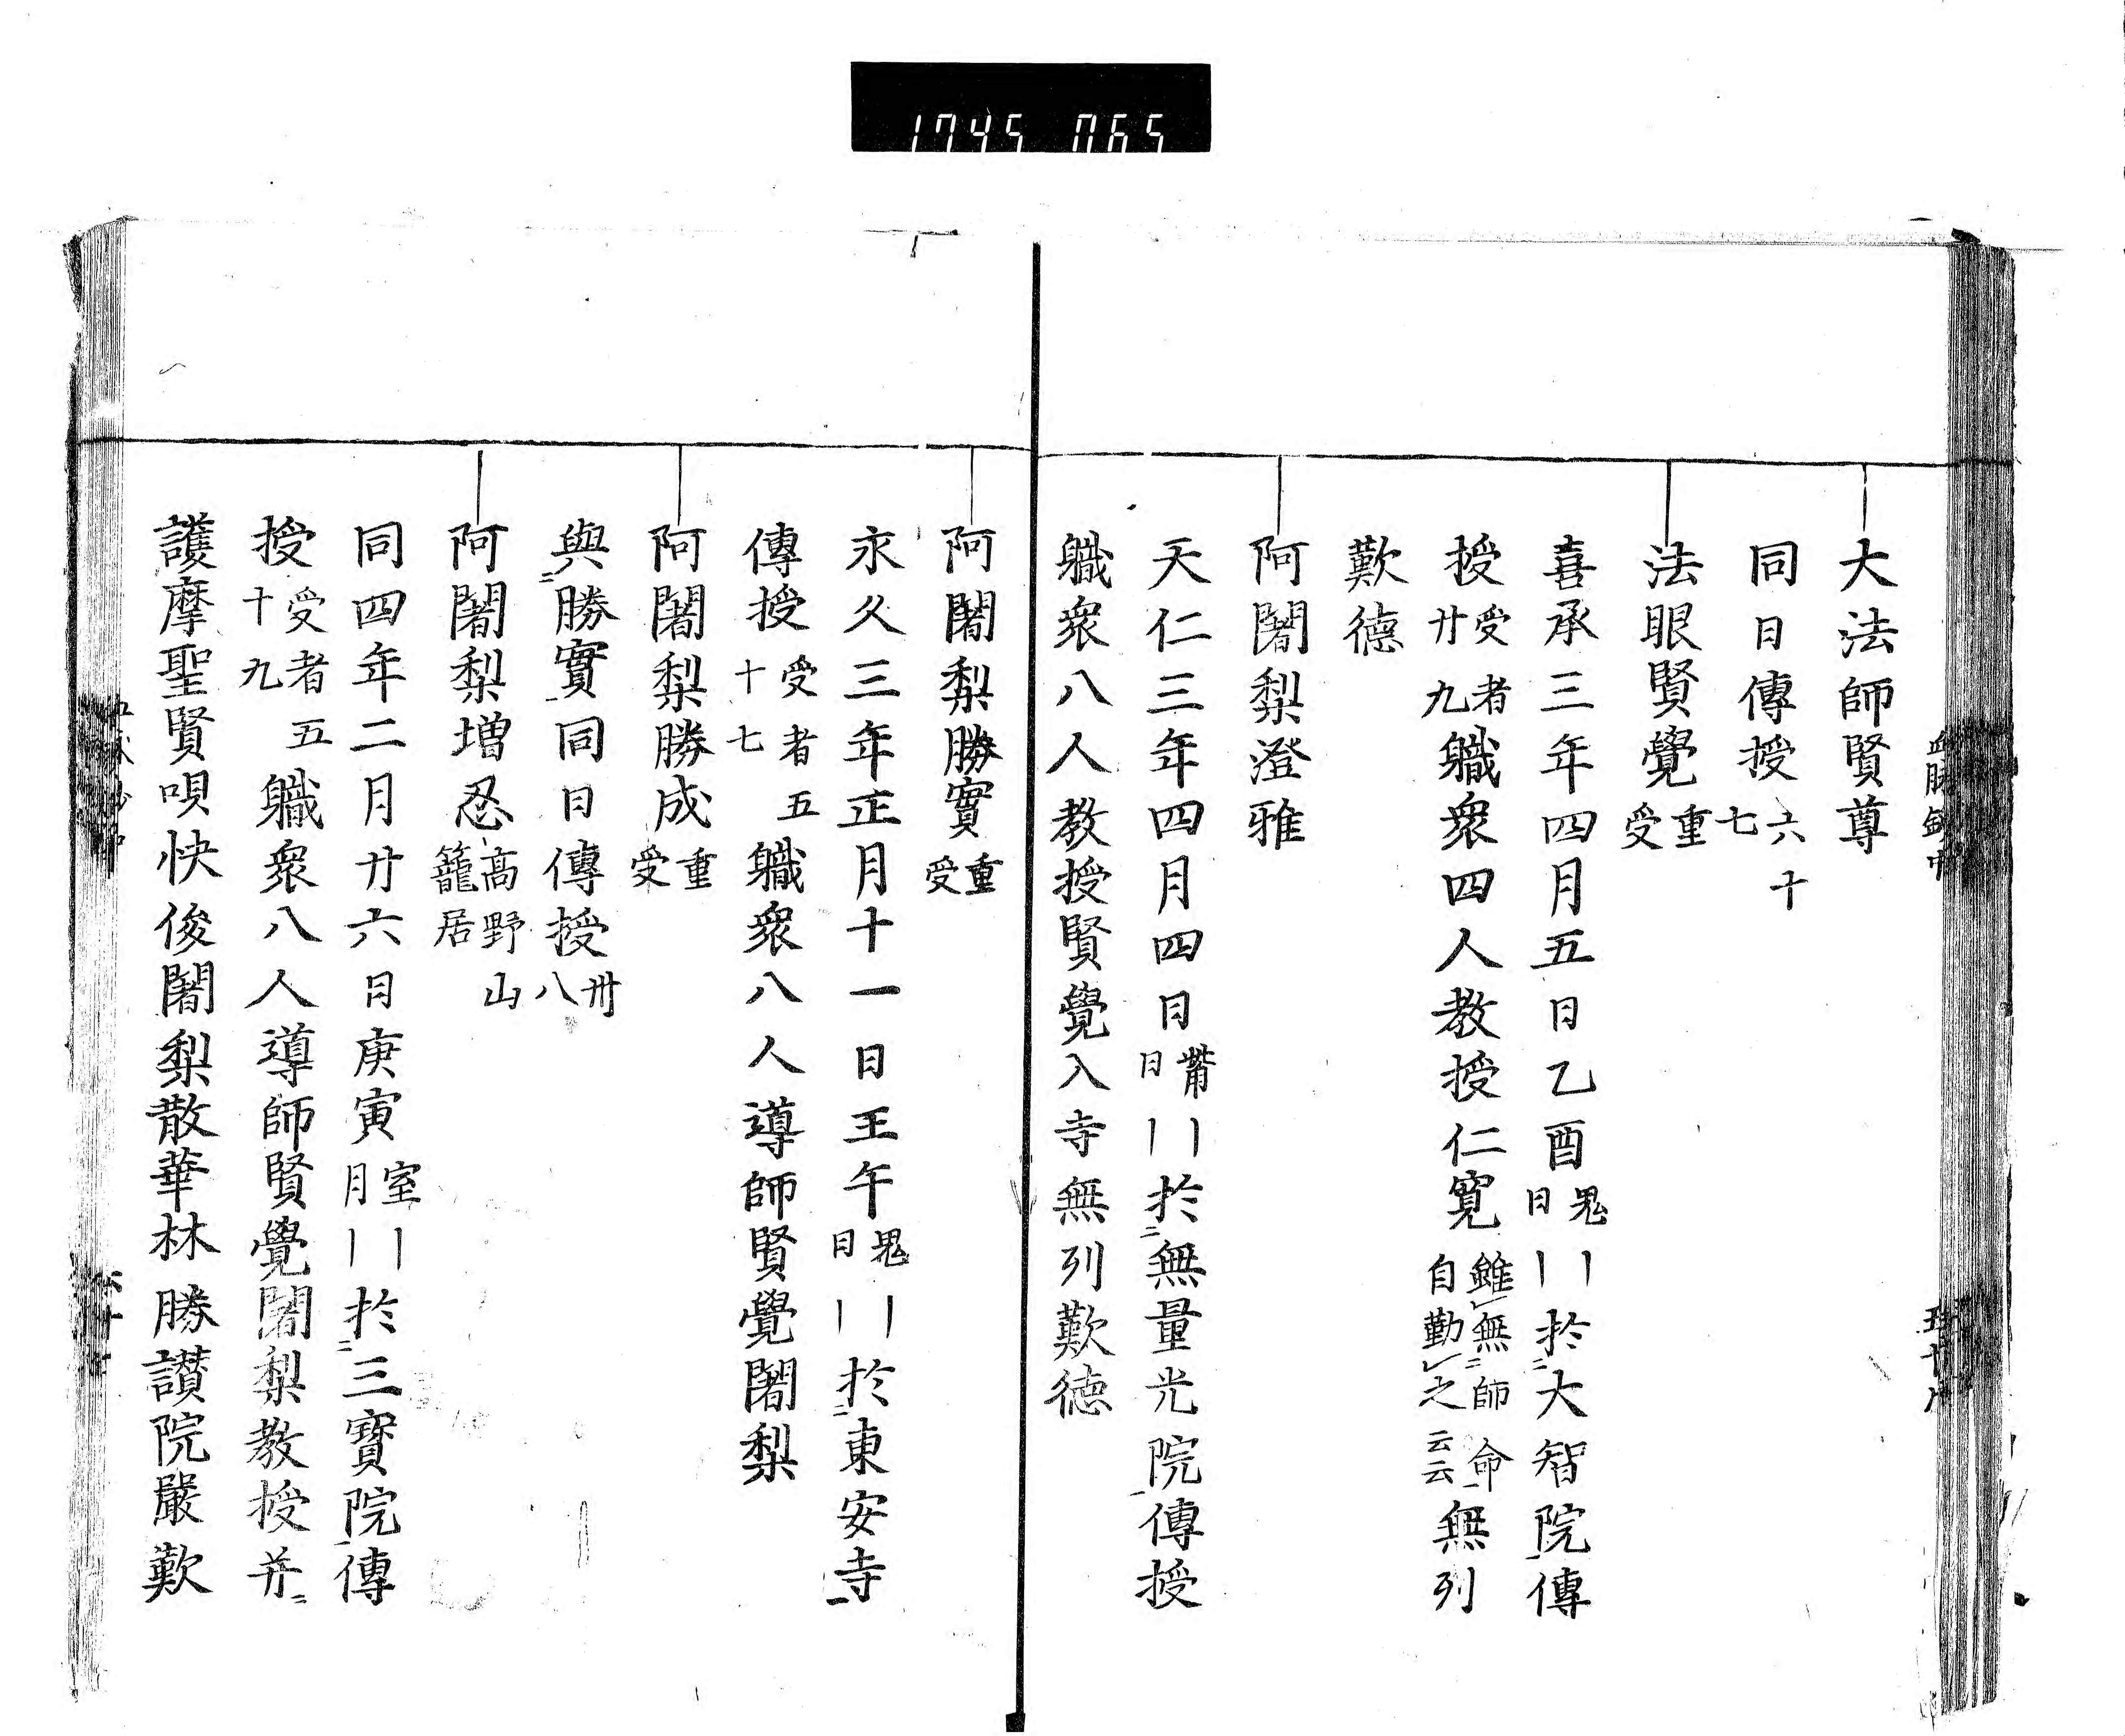 1745 065
大法師賢尊
同日傳授六十七
法眼賢覺重受
喜承三年四月五日乙酉鬼日｜｜於大智院傳
授受者廿九職衆四人教授仁寛雖無師命自勤之云云無列
歎德
阿闍梨澄雅
天仁三年四月四日觜日｜｜於無量光院傳授
職衆八人教授賢覺入寺無列歎德
阿闍梨勝實重受
永久三年正月十一日王午鬼日｜｜於東安寺
傳授受者五十七職衆八人導師賢覺闍梨
阿闍梨勝成重受
與勝實同日傳授卅八
阿闍梨增忍高野山籠居
同四年二月廿六日庚寅室月｜｜於三寶院傳
授受者五十九職衆八人導師賢覺闍梨教授并
護摩聖賢唄快俊闍梨散華林勝讃院嚴歎